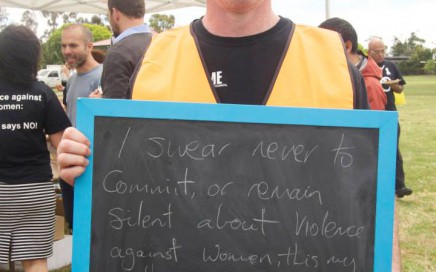 nce against
omen:
says NO!
ME
I swear never to
Commit, or remain
Silent about violence
against women, this my